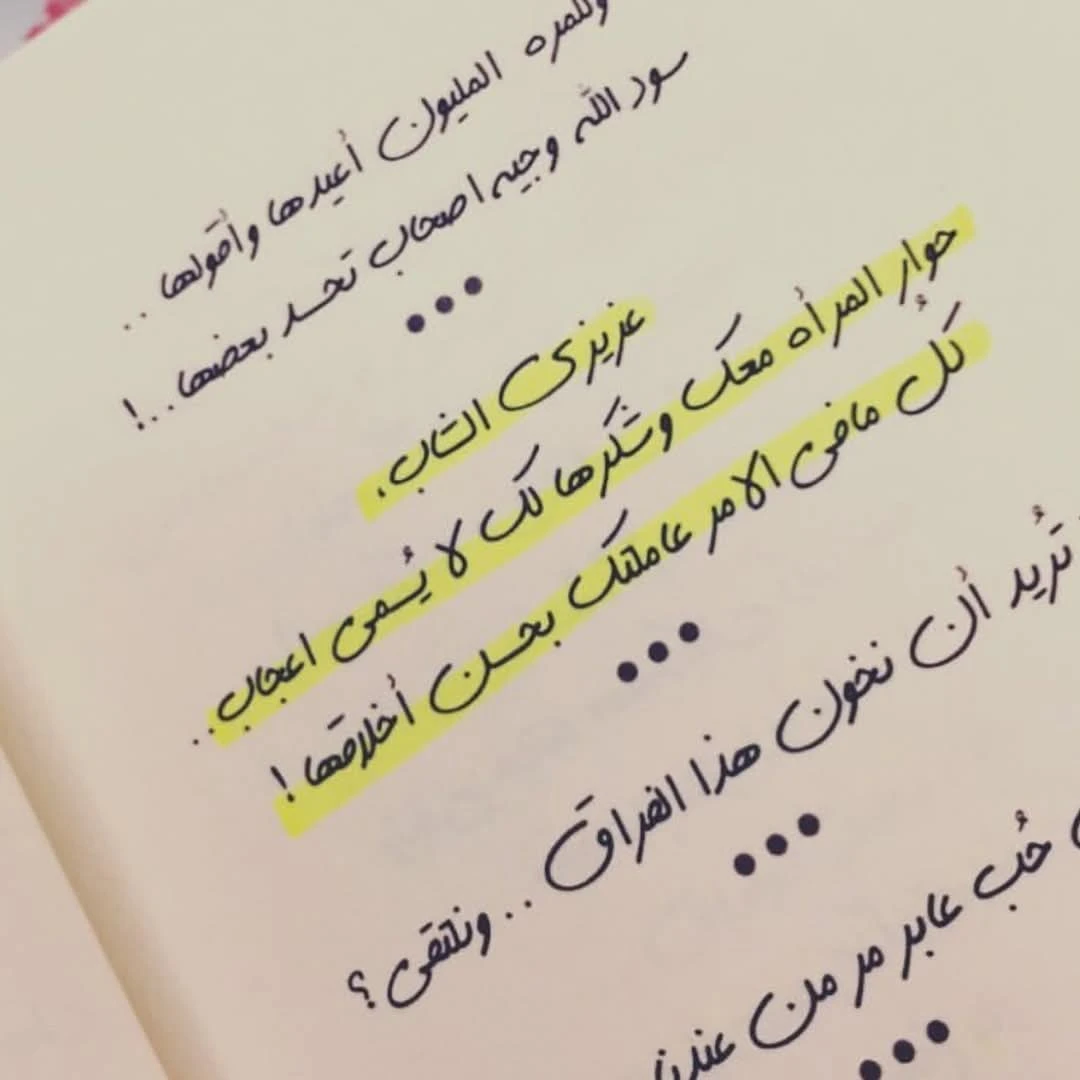 وللمره المليون أعيدها وأقولها ..
سود الله وجيه اصحاب تحسد بعضها ..!
عزيزي الشاب،
حوار المرأه معك وشكرها لك لا يُسمى اعجاب ..
كُل مافي الامر عاملتك بحسن أخلاقها !
تُريد أن نخون هذا الفراق .. ونلتقي ؟
حُب عابر مر من عندنا